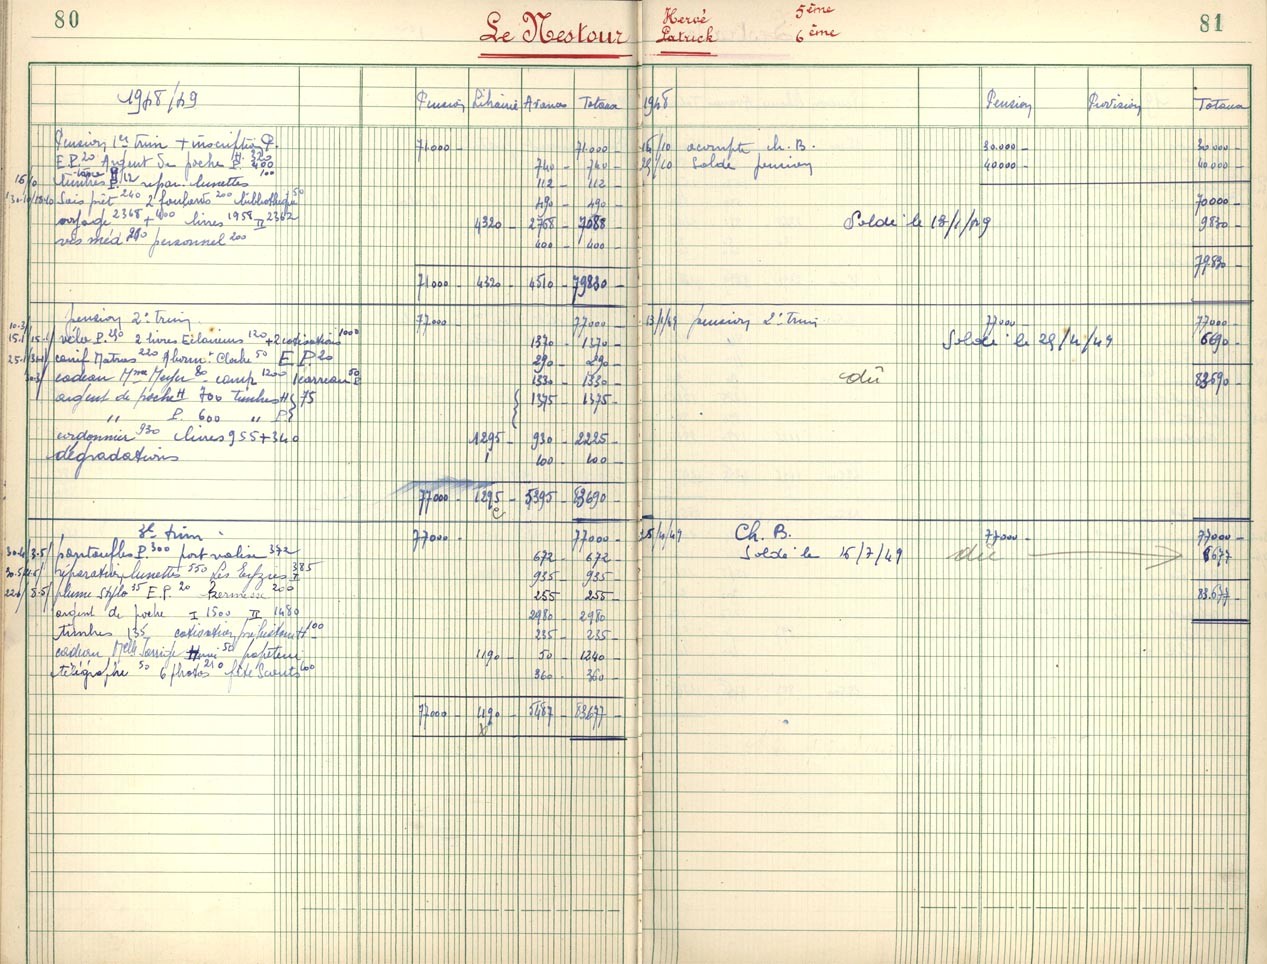 80
Le Nestour
1948/49
Pension Librairie Avances Totaux
Pension 1er trim + inscription P. 71.000 - 71.000 -
E.P. 20 Argent de poche H. 320 P. 400 740 - 740 -
timbres P. 12 répar. lunettes 100 112 112
240 2 foulards 200 bibliothèque 50 490 - 490 -
2368 + 400 livres 1958 II 2362 4320 - 2768 - 7088 -
méd 200 personnel 200 400 - 400 -
71.000 - 4320 - 4510 - 79830 -
pension 2e trim. 77000 - 77000 -
vélo P. 250 2 livres Eclaireurs 120 + 2 cotisations 1000 1370 - 1370 -
canif Matras 220 Cloche 50 E.P. 20 290 - 290 -
cadeau Mme Meyer 80 - camp 1200 1 carreau 50 1330 - 1330 -
argent de poche H 700 timbres H } 75 1375 - 1375 -
" P. 600 " P }
cordonnier 930 livres 955 + 340 1295 - 930 - 2225 -
dégradations 100 - 100 -
77000 - 1295 - 5395 - 83690 -
3e trim. 77000 - 77000 -
pantoufles P. 300 port valise 372 672 - 672 -
réparation lunettes 550 Les Eyzies 385 935 - 935 -
plume stylo 35 E.P. 20 kermesse 200 255 - 255 -
argent de poche I 1500 II 1480 2980 - 2980 -
timbres 135 cotisation 100 235 - 235 -
cadeau Melle Hervé 50 papeterie 1190 - 50 - 1240 -
télégraphe 50 6 photos 210 fête Scouts 100 360 - 360 -
77000 - 1190 - 5487 - 83677 -
Hervé 5ème
Patrick 6ème
81
1948 Pension Provision Totaux
16/10 acompte ch. B. 30.000 - 30.000 -
29/10 solde pension 40000 - 40.000 -
70000 -
Soldé le 18/1/49 9830 -
79.830 -
13/1/49 pension 2e trim 77000 - 77000 -
Soldé le 29/4/49 6690 -
dû 83690 -
25/4/49 Ch. B. 77000 - 77000 -
Soldé le 15/7/49 dû 6677
83.677 -